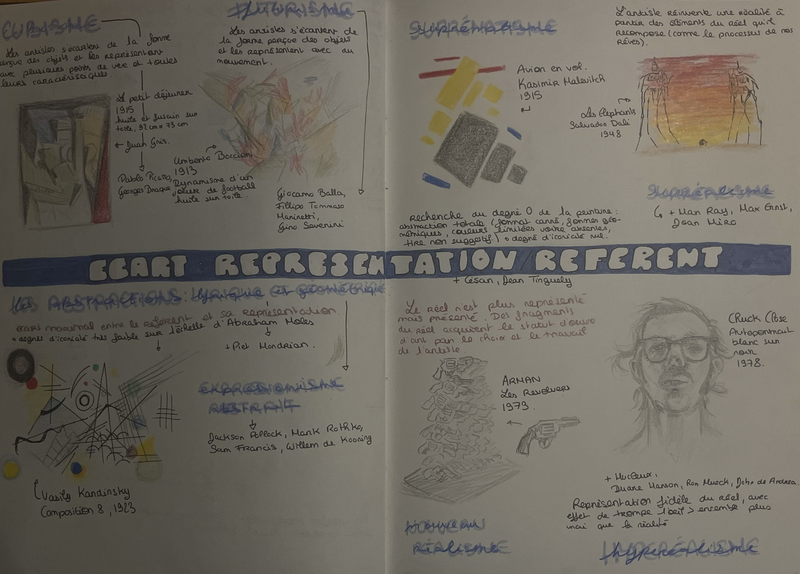 CUBISME
Les artistes s'écartent de la forme
perçue des objets et les représentent
avec plusieurs points de vue et toutes
leurs caractéristiques
Le petit déjeuner
1915
huile et fusain sur
toile, 91 cm x 73 cm
Juan Gris.
Pablo Picasso,
Georges Braque
FUTURISME
Les artistes s'écartent de
la forme perçue des objets
et les représente avec du
mouvement.
Umberto Boccioni
1913
Dynamisme d'un
joueur de football
huile sur toile.
Giacomo Balla,
Filippo Tommaso
Marinetti,
Gino Severini
SUPRÉMATISME
Avion en vol.
Kasimir Malevitch
1915
Recherche du degré 0 de la peinture :
abstraction totale (format carré, formes géo-
métriques, couleurs limitées voire absentes,
titre non suggestif) + degré d'iconicité nul.
L'artiste réinvente une réalité à
partir des éléments du réel qu'il
recompose (comme le processus de nos
rêves).
Les Éléphants
Salvador Dali
1948
SURRÉALISME
+ Man Ray, Max Ernst,
Joan Miro
ECART REPRESENTATION REFERENT
Les ABSTRACTIONS : lyrique et géométrique
écart maximal entre le référent et sa représentation
+ degrés d'iconicité très faible sur l'échelle d'Abraham Moles
+ Piet Mondrian.
Vasily Kandinsky
Composition 8, 1923
EXPRESSIONNISME
ABSTRAIT
Jackson Pollock, Mark Rothko,
Sam Francis, Willem de Kooning
+ César, Jean Tinguely
Le réel n'est plus représenté
mais présenté. Des fragments
du réel acquièrent le statut d'œuvre
d'art par le choix et le travail
de l'artiste
ARMAN
Les Revolvers
1979.
NOUVEAU
RÉALISME
Chuck Close
Autoportrait
blanc sur
noir
1978.
Duane Hanson, Ron Mueck, John de Andrea
Représentation fidèle du réel, avec
effet de trompe l'œil > encore plus
vrai que la réalité
HYPERRÉALISME